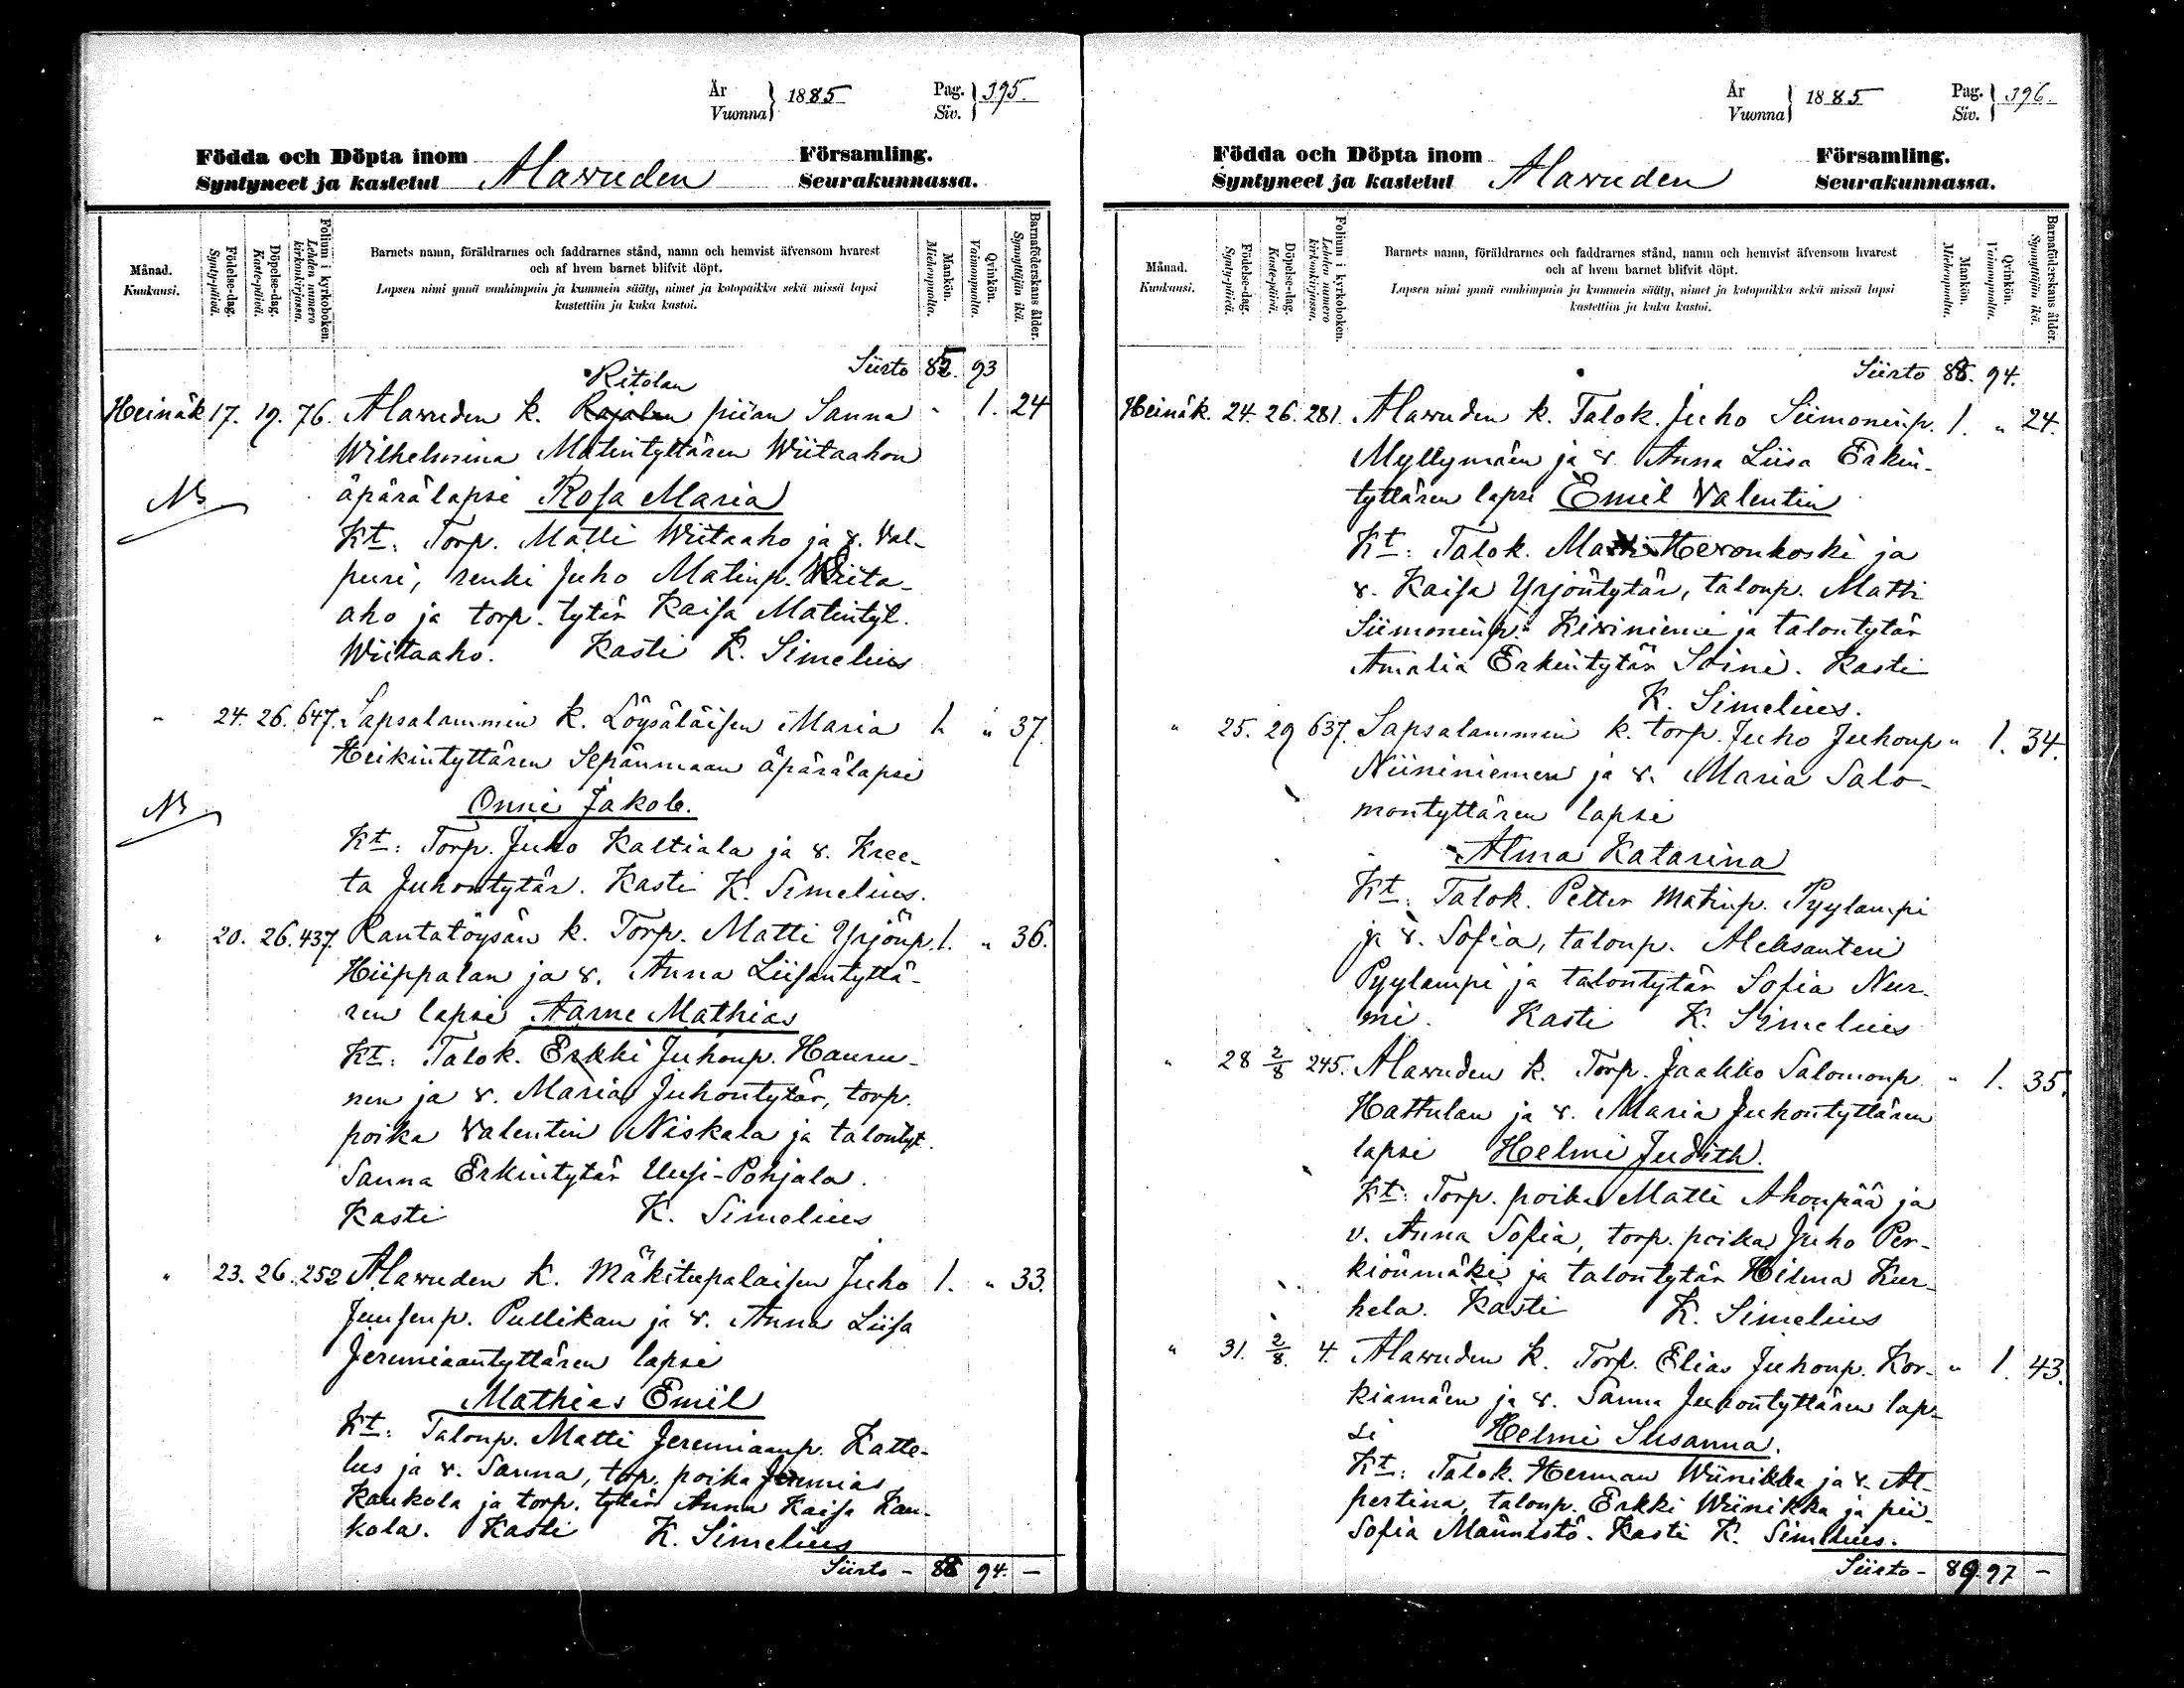 År
Vuonna } 1885
Pag.
Siv. } 395.
Födda och Döpta inom Församling.
Syntyneet ja kastetut Alavuden Seurakunnassa.
Månad.
Kuukausi.
Födelse-dag.
Syntypäivä.
Döpelse-dag.
Kaste-päivä.
Folium i kyrkoboken.
Lehden numero kirkonkirjassa.
Barnets namn, föräldrarnes och faddrarnes stånd, namn och hemvist äfvensom hvarest
och af hvem barnet blifvit döpt.
Lapsen nimi ynnä vanhimpain ja kummein sääty, nimet ja kotopaikka sekä missä lapsi
kastettiin ja kuka kastoi.
Mankön.
Miehenpuolia.
Qvinkön.
Vaimonpuolia.
Barnaföderskans ålder.
Synnyttäjän ikä.
Siirto 85. 93
Ritolan
Heinäk 17. 19. 76. Alavuden k. Rajalan piian Sanna " 1. 24
Wilhelmina Matintyttären Wiitaahon
NB äpärälapsi Rosa Maria
Kt: Torp. Matti Wiitaaho ja v. Val-
puri, renki Juho Matinp. Wiita-
aho ja torp. tytär Kaisa Matintyt.
Wiitaaho. Kasti K. Simelius
" 24. 26. 647. Sapsalammin k. Löysäläisen Maria 1. " 37.
Heikintyttären Sepänmaan äpärälapsi
NB Onni Jakob.
Kt: Torp. Juho Kaltiala ja v. Kree-
ta Juhontytär. Kasti K. Simelius.
" 20. 26. 437. Rantatöysän k. Torp. Matti Yrjönp. 1. " 36.
Hiippalan ja v. Anna Liisantyttä-
ren lapsi Aarne Mathias
Kt: Talok. Erkki Juhonp. Haunu-
nen ja v. Maria Juhontytär, torp.
poika Valentin Niskala ja talontyt.
Sanna Erkintytär Uusi-Pohjala.
Kasti K. Simelius
" 23. 26. 252 Alavuden k. Mäkitupalaisen Juho 1. " 33.
Juusenp. Pullikan ja v. Anna Liisa
Jeremiaantyttären lapsi
Mathias Emil
Kt: Talonp. Matti Jeremiaanp. Katte-
lus ja v. Sanna, torp. poika Jeremias
Kaukola ja torp. tytär Anna Kaisa Kau-
kola. Kasti K. Simelius
Siirto - 88 94. -
År
Vuonna } 1885
Pag.
Siv. } 396.
Födda och Döpta inom Församling.
Syntyneet ja kastetut Alavuden Seurakunnassa.
Månad.
Kuukausi.
Födelse-dag.
Syntypäivä.
Döpelse-dag.
Kaste-päivä.
Folium i kyrkoboken.
Lehden numero kirkonkirjassa.
Barnets namn, föräldrarnes och faddrarnes stånd, namn och hemvist äfvensom hvarest
och af hvem barnet blifvit döpt.
Lapsen nimi ynnä vanhimpain ja kummein sääty, nimet ja kotopaikka sekä missä lapsi
kastettiin ja kuka kastoi.
Mankön.
Miehenpuolia.
Qvinkön.
Vaimonpuolia.
Barnaföderskans ålder.
Synnyttäjän ikä.
Siirto 88. 94.
Heinäk. 24. 26. 281. Alavuden k. Talok. Juho Siimoninp. 1. " 24.
Myllymäen ja v. Anna Liisa Erkin-
tyttären lapsi Emil Valentin
Kt: Talok. Matti Hevonkoski ja
v. Kaisa Yrjöntytär, talonp. Matti
Siimoninp. Kiviniemi ja talontytär
Amalia Erkintytär Soini. Kasti
K. Simelius.
" 25. 29 637. Sapsalammin k. torp. Juho Juhonp " 1. 34.
Niininiemen ja v. Maria Salo-
montyttären lapsi
Alma Katarina
Kt: Talok. Petter Matinp. Pyylampi
ja v. Sofia, talonp. Aleksanteri
Pyylampi ja talontytär Sofia Nur-
mi. Kasti K. Simelius
" 28 2/8 245. Alavuden k. Torp. Jaakko Salomonp. " 1. 35.
Hattulan ja v. Maria Juhontyttären
lapsi Helmi Judith.
Kt: Torp. poika Matti Ahonpää ja
v. Anna Sofia, torp. poika Juho Per-
kiönmäki ja talontytär Hilma Kur-
hela. Kasti K. Simelius
" 31. 2/8. 4. Alavuden k. Torp. Elias Juhonp. Kor- " 1. 43.
kiamäen ja v. Sanna Juhontyttären lap-
si Helmi Susanna.
Kt: Talok. Herman Wiinikka ja v. Al-
pertina, talonp. Erkki Wiinikka ja pii-
Sofia Männistö. Kasti K. Simelius.
Siirto - 89 97 -